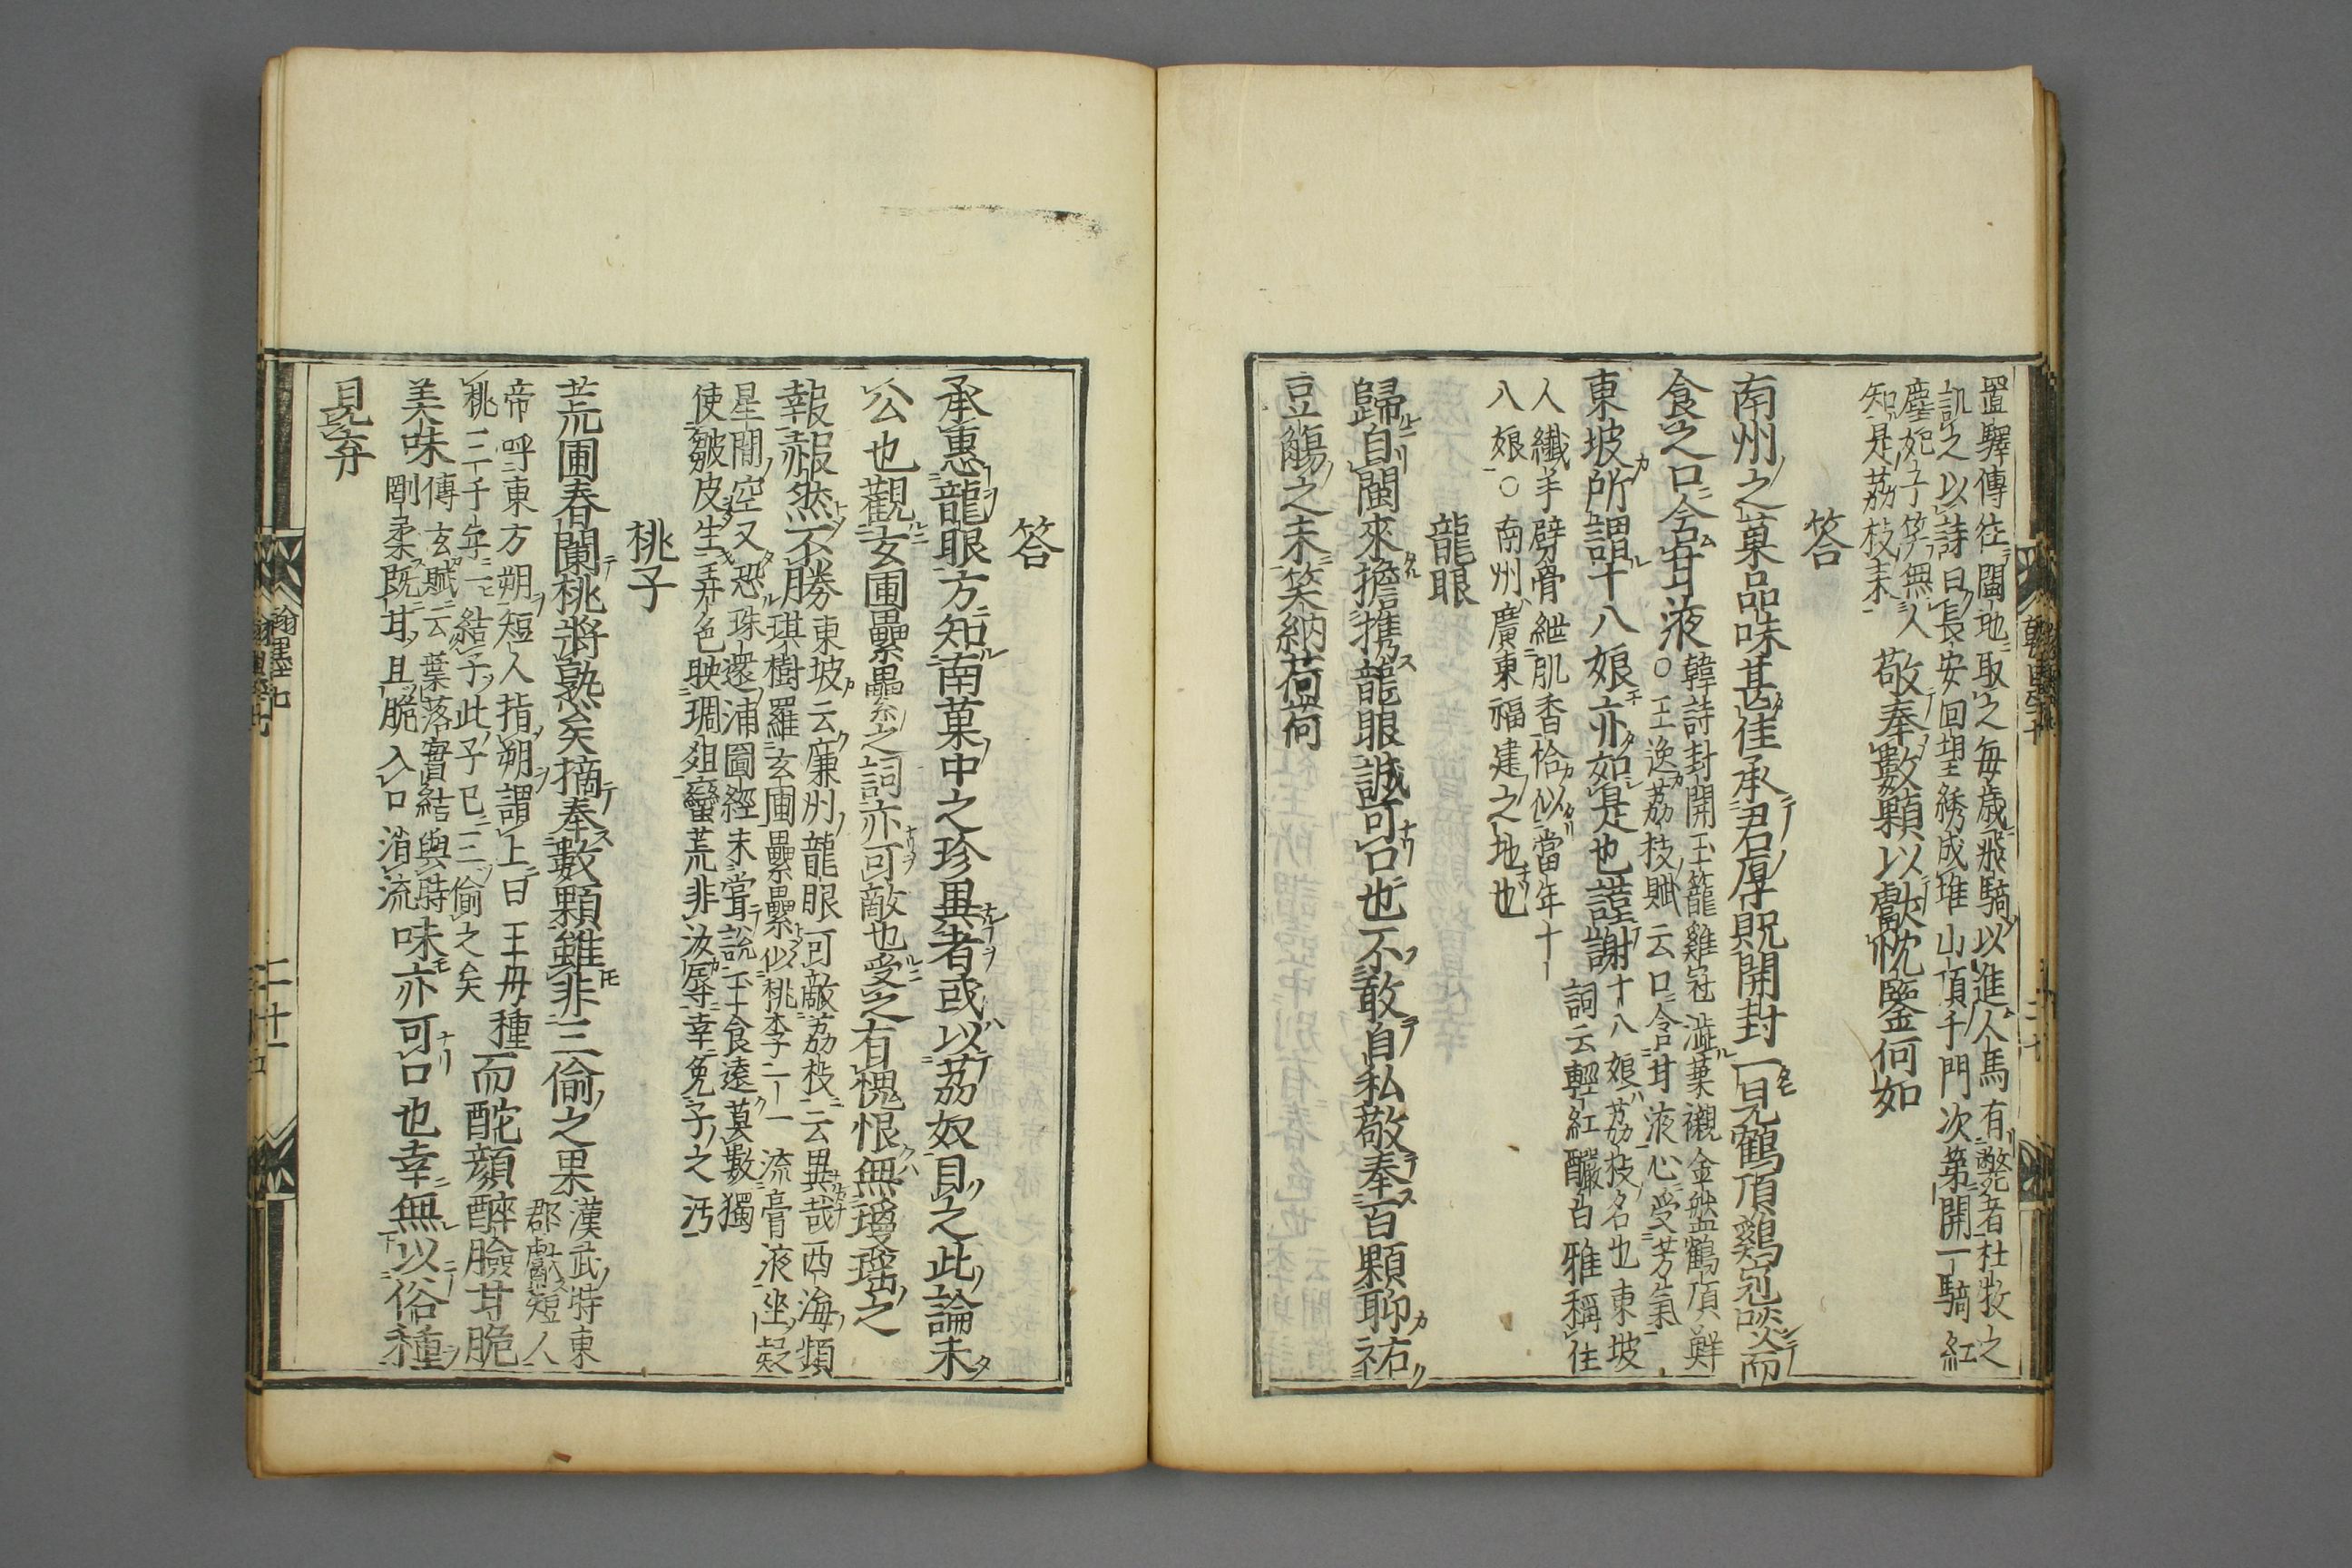 置驛傳往閩地取之每歲飛騎以進人馬有斃者杜牧之
詩曰長安回望綉成堆山頂千門次第開一騎紅
塵妃子笑無人
知是荔枝来
敬奉數顆以獻忱鑒何如
答
南州之菓品味甚佳承君厚貺開封一見鶴頂鷄冠啖而
食之口含甘液○
韓詩封開玉籠雞冠澁葉襯金盤鶴頂鮮
王逸荔枝賦云口含甘液心受芳氣
東坡所謂十八娘亦如是也謹謝
十八娘荔枝名也東坡
詞云輕紅釅白雅稱佳
人纖手擘骨細肌香恰似當年十一
八娘○南州廣東福建之地也
龍眼
歸自閩來擔携龍眼誠可口也不敢自私敬奉百顆聊祐
豆觴之末笑納荷荷
答
承惠龍眼方知南菓中之珍異者或以荔奴目之此論未
公也觀玄圃纍纍之詞亦可敵也受之有愧恨無瓊瑤之
報赧然不勝
東坡云廉州龍眼可敵荔枝云異哉西海頻
琪樹羅玄圃纍纍似桃李一一流膏液坐疑
星閒空又恐珠還浦圖經未嘗說玉食遠莫數獨
使皺皮生弄色映琱俎蠻荒非汝辱幸免子之汚
桃子
荒圃春闌桃將熟矣摘奉數顆雖非三偷之果
漢武時東
郡獻短人
帝呼東方朔短人指朔謂上曰王母種
桃三千年一結子此子已三偷之矣
而酡顏醉臉甘脆
美味
傳玄賦云葉落實結與時
剛柔既甘且脆入口消流
味亦可口也幸無以俗種
見弃
二十一